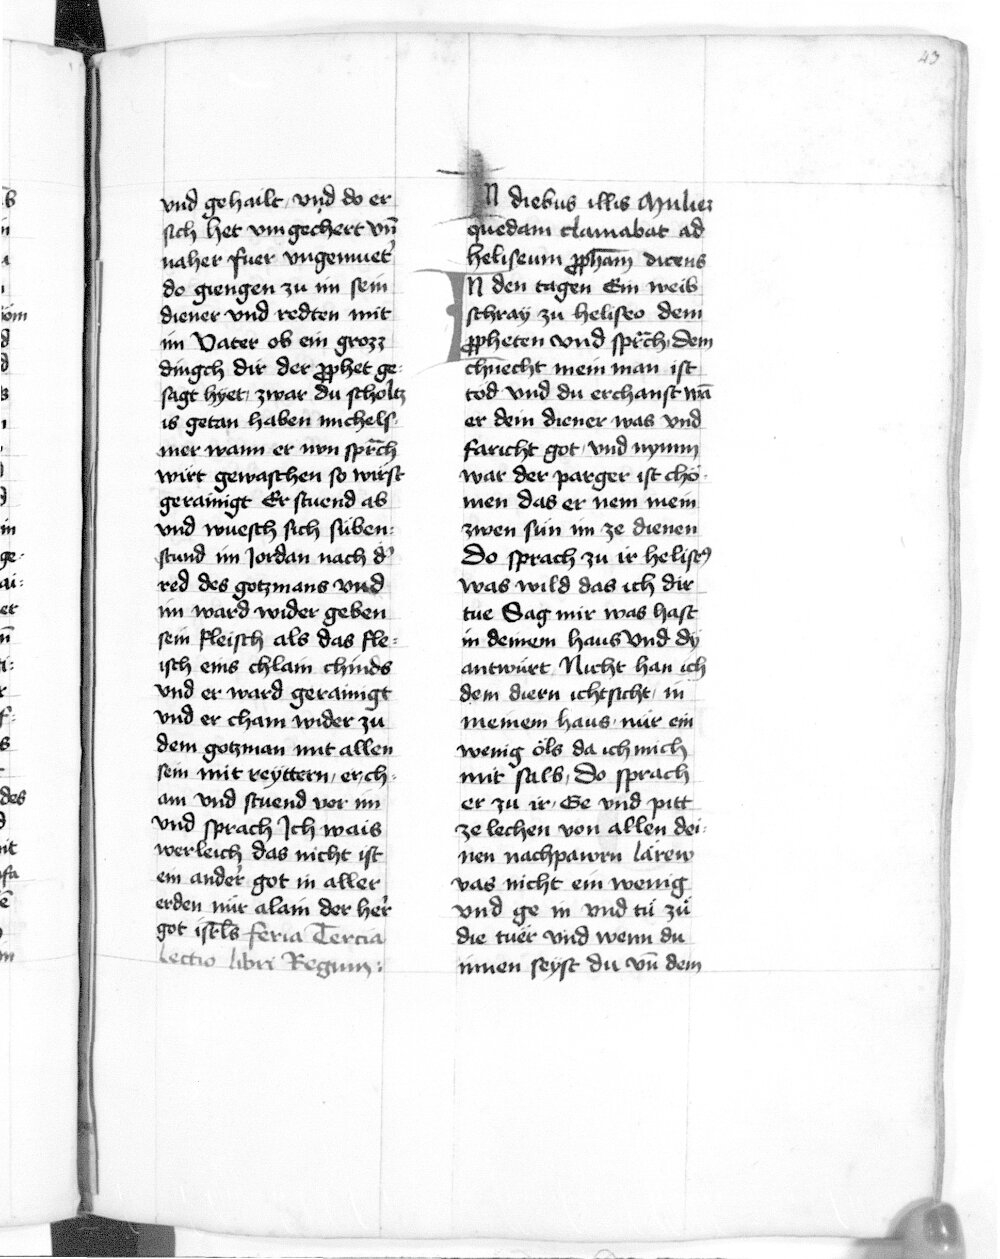 43
vnd gehailt / vnd do er
sich het vmgechert vn̄
naher fuer vngemuet
do giengen zu im sein
diener vnd redten mit
im Vater ob ein grozz
dingch dir der p̱phet ge:
sagt hyet / zwar du scholtz
is getan haben michels:
mer wann er nvn spr̄ch
wirt gewaschen so wirst
gerainigt Er stuend ab
vnd wuesch sich siben:
stund im Jordan nach d̾
red des gotzmans vnd
im ward wider geben
sein fleisch als das fle:
isch eins chlain chinds
vnd er ward gerainigt
vnd er cham wider zu
dem gotzman mit allen
sein mit reyttern / er ch:
am vnd stuend vor im
vnd sprach Ich wais
werleich das nicht ist
ein ander got in aller
erden nür alain der her
got isr̄ls feria Tercia
Lectio libri Regum:
IN diebus illis Mulier
quedam clamabat ad
heliseum p̱ph̄am dicens
IN den tagen Ein weib
schray zu heliseo dem
p̱pheten vnd spr̄ch / Dem
chnecht mein man ist
tod vnd du erchanst wā
er dein diener was vnd
faricht got / vnd nymm
war der parger ist cho:
men das er nem mein
zwen sün im ze dienen
Do sprach zu ir heliseꝰ
was wild das ich dir
tue Sag mir was hast
in deinem haus Vnd dy
antwürt Nicht han ich
dem diern ichtsicht / in
meinem haus / nür ein
wenig öls da ich mich
mit salb / Do sprach
er zu ir / Ge vnd pitt
ze lechen von allen dei:
nen nachpawrn lärew
vas nicht ein wenig
vnd ge in vnd tü zü
die tuer vnd wenn du
innen seyst du vn̄ dein